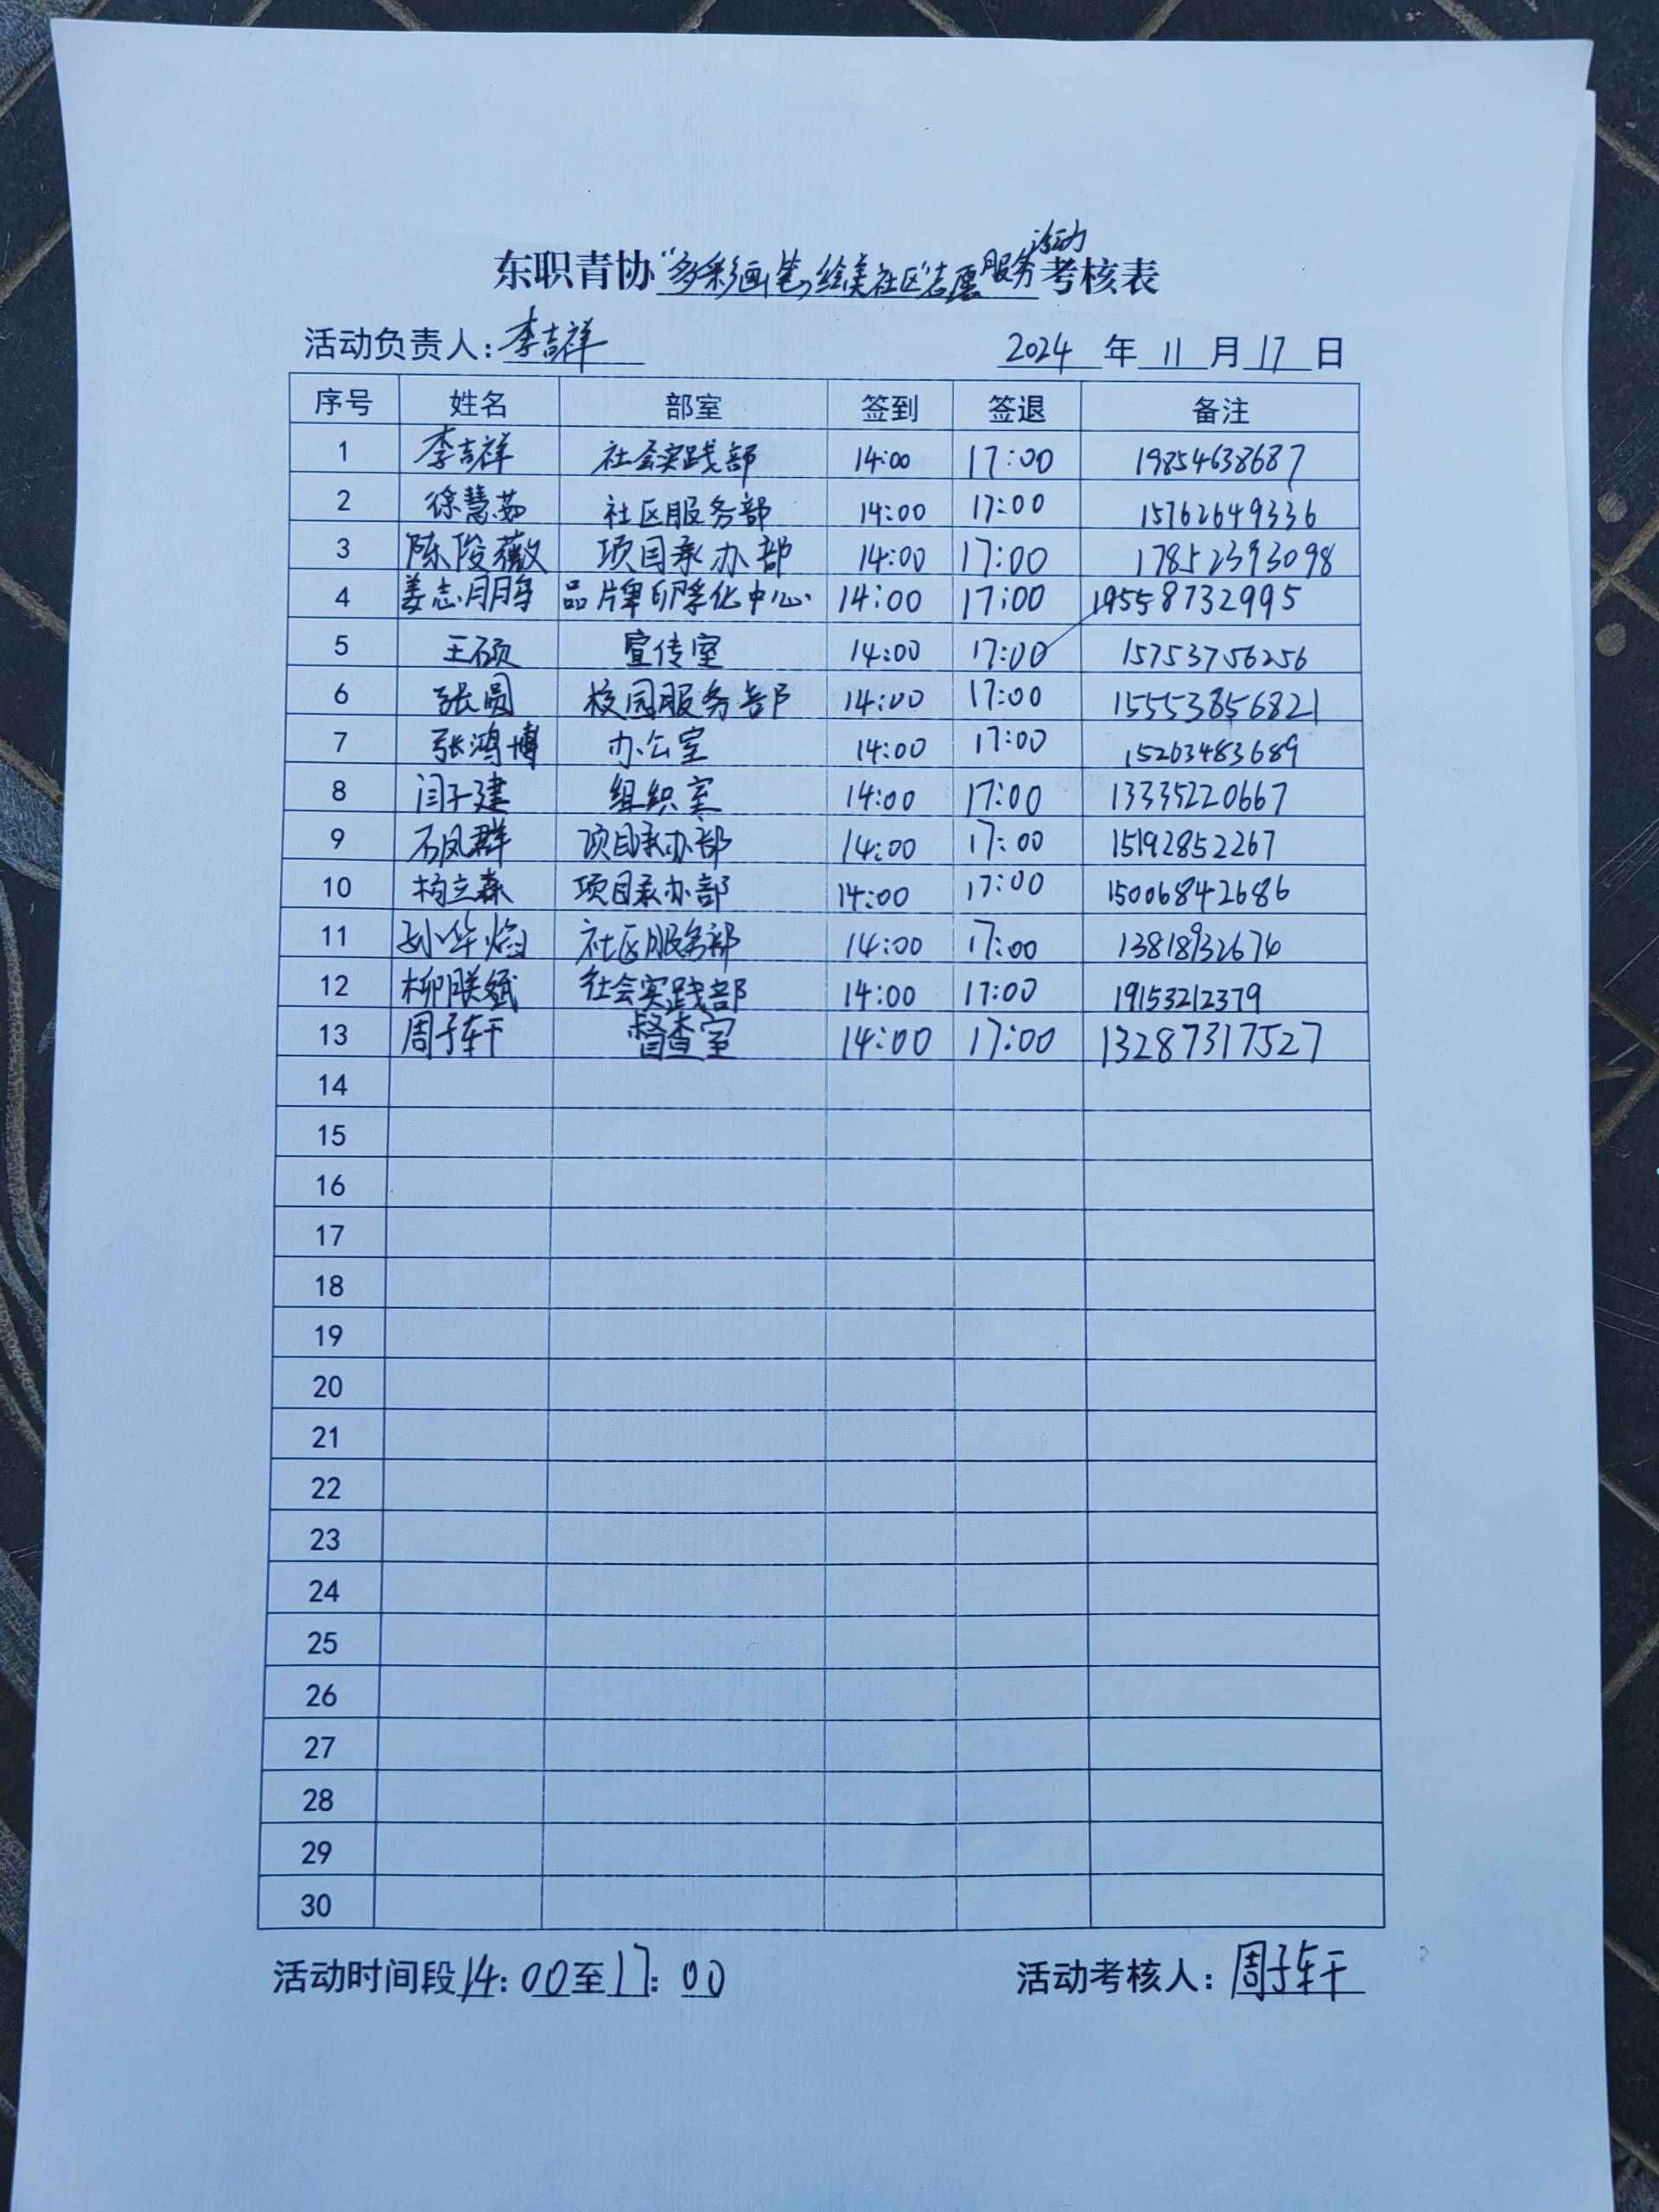 东职青协“多彩画笔,绘美社区”志愿服务活动考核表
活动负责人:李吉祥 2024 年 11 月 17 日
序号 姓名 部室 签到 签退 备注
1 李吉祥 社会实践部 14:00 17:00 19854638687
2 徐慧茹 社区服务部 14:00 17:00 15762649336
3 陈俊薇 项目承办部 14:00 17:00 17852393098
4 姜志鹏 品牌孵化中心 14:00 17:00 19558732995
5 王硕 宣传室 14:00 17:00 15753756256
6 张圆 校园服务部 14:00 17:00 15553856821
7 张鸿博 办公室 14:00 17:00 15263483689
8 闫子建 组织室 14:00 17:00 13335220667
9 石凤群 项目承办部 14:00 17:00 15192852267
10 杨立森 项目承办部 14:00 17:00 15006842686
11 社区服务部 14:00 17:00
12 柳朕斌 社会实践部 14:00 17:00 19153212379
13 周子轩 督查室 14:00 17:00 13287317527
14
15
16
17
18
19
20
21
22
23
24
25
26
27
28
29
30
活动时间段14:00至17:00 活动考核人:周子轩